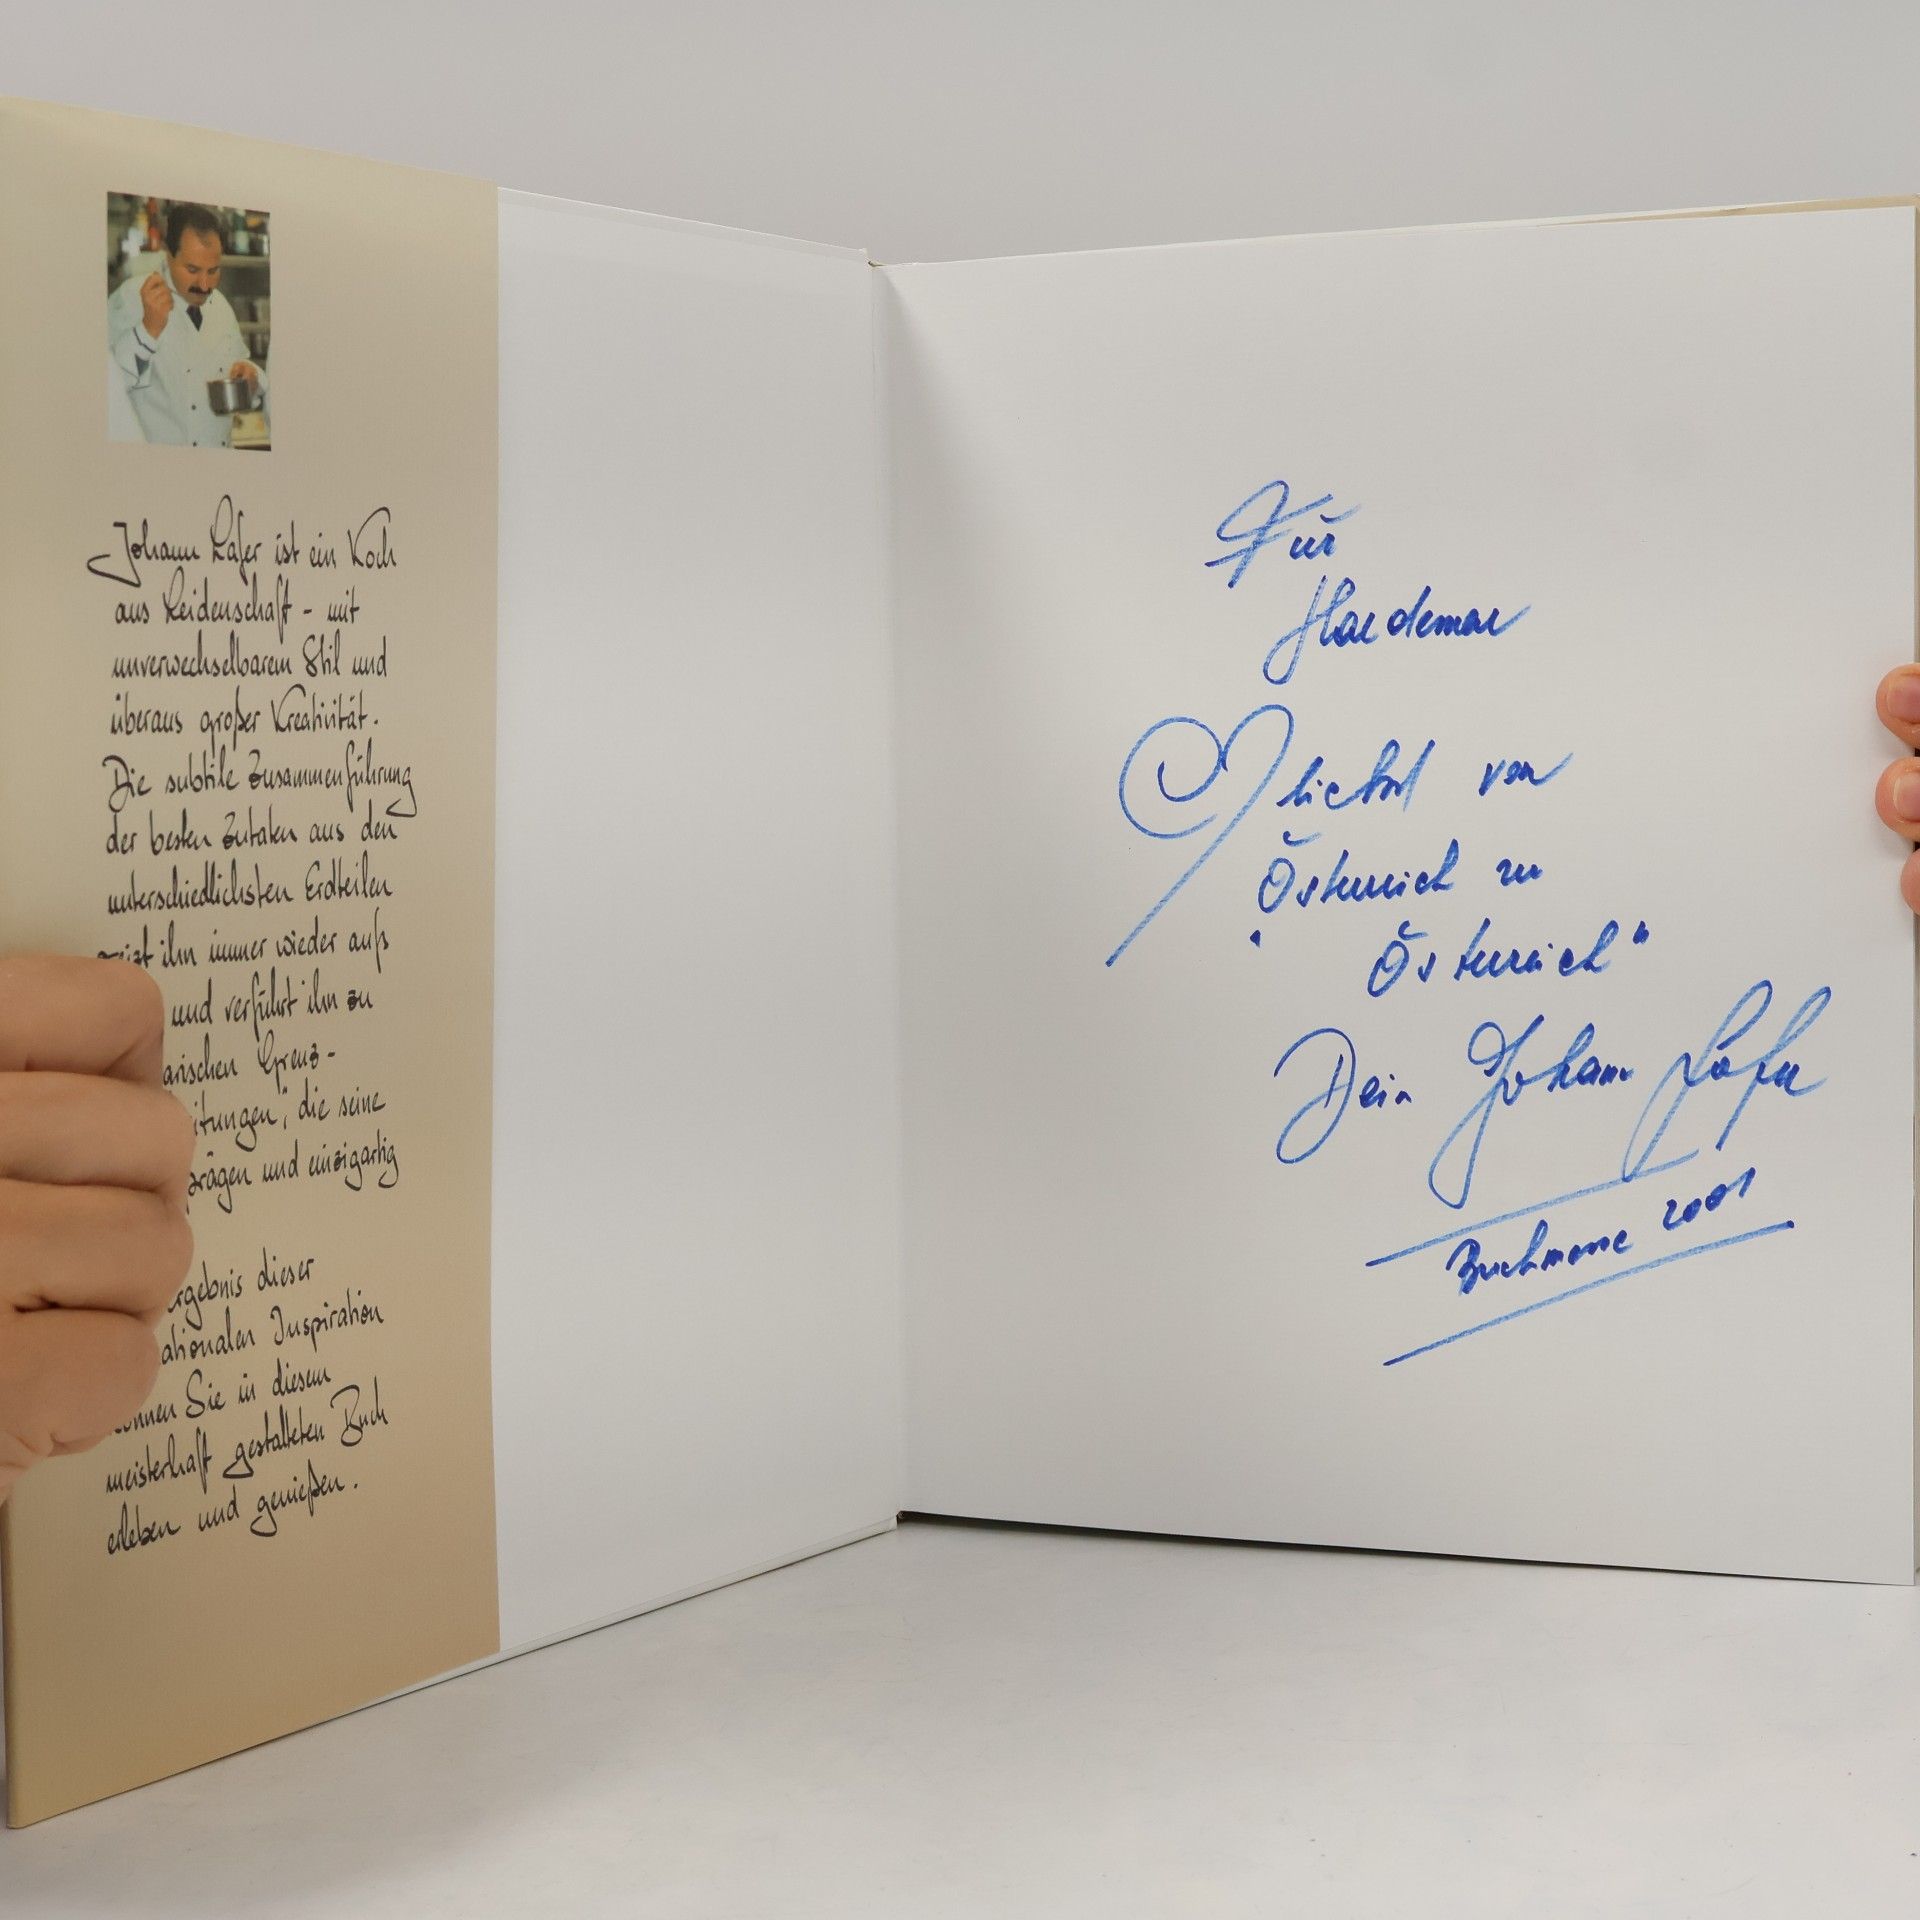 Johann Lafer ist ein Koch
aus Leidenschaft – mit
unverwechselbarem Stil und
überaus großer Kreativität.
Die subtile Zusammenführung
der besten Zutaten aus den
unterschiedlichsten Erdteilen
reizt ihn immer wieder aufs
und verführt ihn zu
arischen Grenz-
itungen", die seine
prägen und einzigartig
rgebnis dieser
ationalen Inspiration
können Sie in diesem
meisterhaft gestalteten Buch
erleben und genießen.
Für
Herzlichst von
Österreich zu
"Österreich"
Dein Johann Lafer
Buchmesse 2001